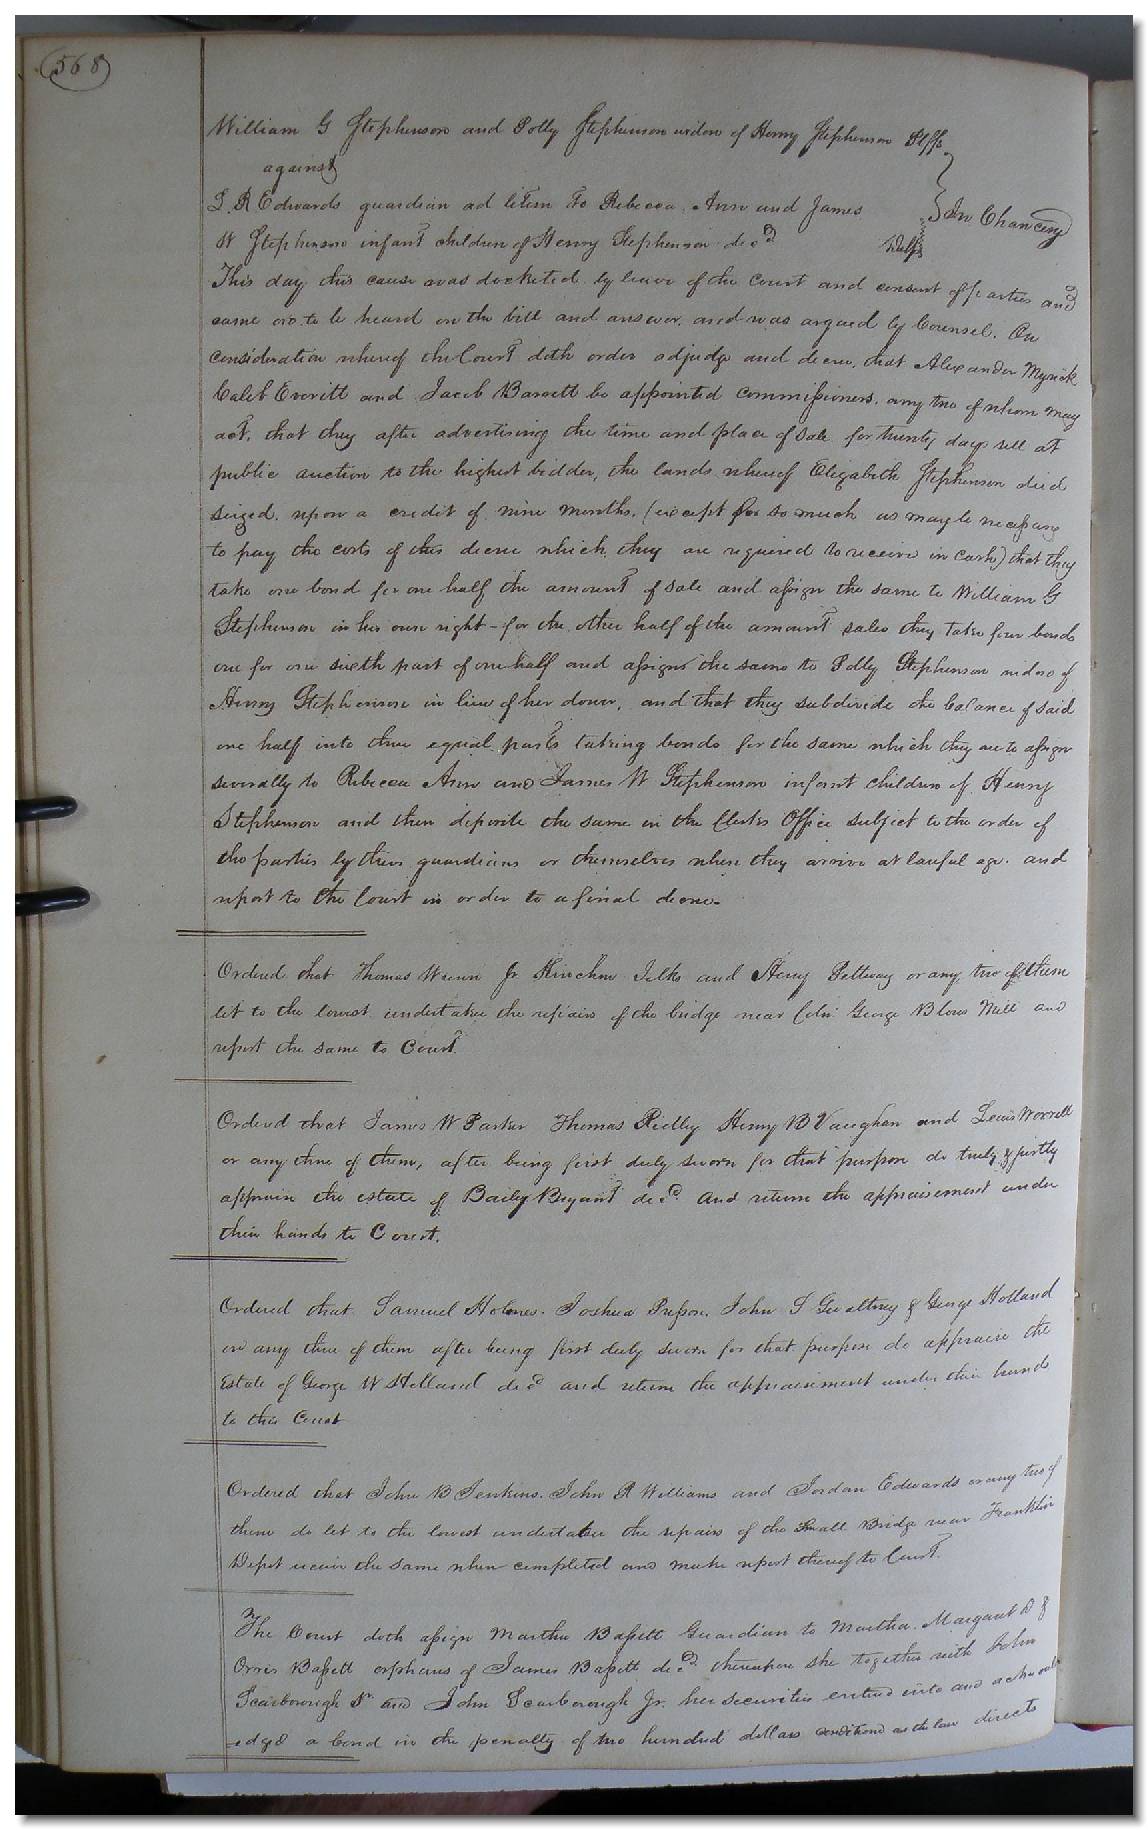 568
William G Stephenson and Polly Stephenson widow of Henry Stephenson Plffs
against
In Chancery
R Edwards guardian ad litem to Rebecca, Ann and James
W Stephenson infant children of Henry Stephenson decd Defts
This day this cause was docketed by leave of the Court and consent of parties and
came on to be heard on the bill and answer, and was argued by Counsel. On
consideration whereof the Court doth order adjudge and decree, that Alexander Myrick
Caleb Everitt and Jacob Barrett be appointed commissioners, any two of whom may
act, that they after advertising the time and place of sale for twenty days sell at
public auction to the highest bidder, the lands whereof Elizabeth Stephenson died
seized, upon a credit of nine months, (except for so much as may be necessary
to pay the costs of this decree which they are required to receive in cash) that they
take one bond for one half the amount of sale and assign the same to William G
Stephenson in his own right - for the other half of the amount sales they take four bonds
one for one sixth part of one half and assign the same to Polly Stephenson widow of
Henry Stephenson in lieu of her dower, and that they subdivide the balance of said
one half into three equal parts taking bonds for the same which they are to assign
severally to Rebecca Ann and James W Stephenson infant children of Henry
Stephenson and then deposite the same in the Clerks Office subject to the order of
the parties by their guardians or themselves when they arrive at lawful age. and
report to the Court in order to a final decree.
Ordered that Thomas Wrenn Jr Kinchen Jelks and Henry Pettway or any two of them
let to the lowest undertaker the repairs of the bridge near Colo. George Blows Mill and
report the same to Court.
Ordered that James W Parker Thomas Ridley Henry B Vaughan and Lewis Worrell
or any three of them, after being first duly sworn for that purpose do truly & justly
appraise the estate of Baily Bryant decd. and return the appraisement under
their hands to Court.
Ordered that Samuel Holmes. Joshua Pretlow. John S Gwaltney & George Holland
or any three of them after being first duly sworn for that purpose do appraise the
Estate of George W Holland decd and return the appraisement under their hands
to this Court
Ordered that John B Jenkins. John R Williams and Jordan Edwards or any two of
them do let to the lowest undertaker the repairs of the Small Bridge near Franklin
Depot receive the same when completed and make report thereof to Court.
The Court doth assign Martha Bassett Guardian to Martha. Margaret D &
Orris Bassett orphans of James Bassett decd. thereupon she together with John
Scarborough Sr. and John Scarborough Jr. her securities entered into and acknowl
edged a bond in the penalty of two hundred dollars conditioned as the law directs